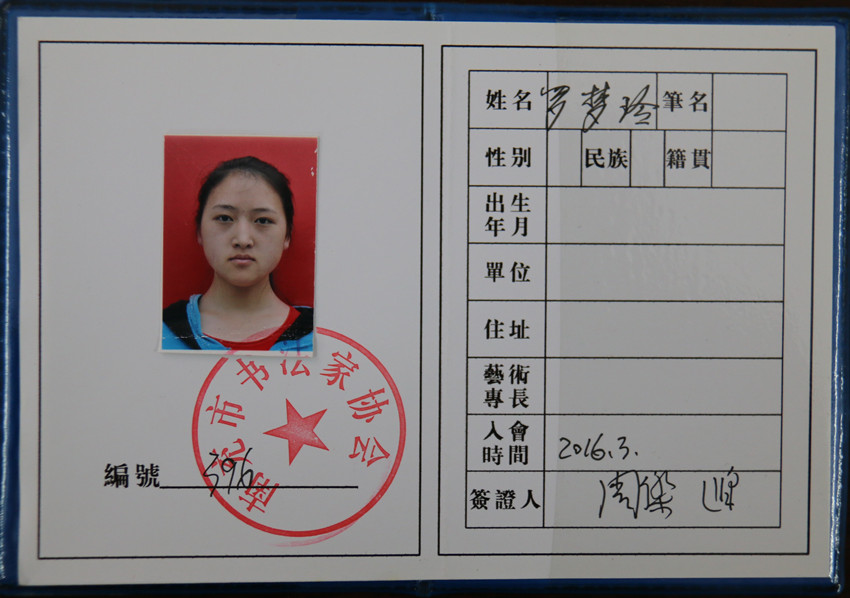 南充市书法家协会
編號 396
姓名 罗梦玲 筆名
性别 民族 籍貫
出生年月
單位
住址
藝術專長
入會時間 2016.3.
簽證人